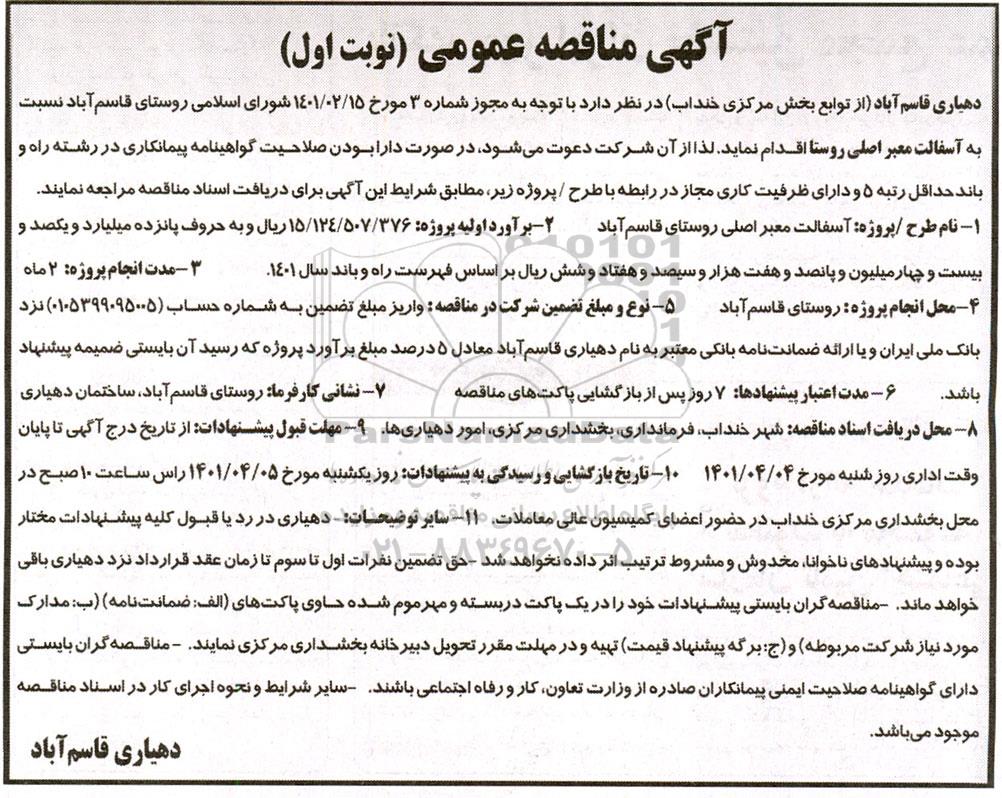 آگهی مناقصه عمومی (نوبت اول)
دهیاری قاسم‌آباد (از توابع بخش مرکزی خنداب) در نظر دارد با توجه به مجوز شماره ۳ مورخ ۱۴۰۱/۰۲/۱۵ شورای اسلامی روستای قاسم‌آباد نسبت
به آسفالت معبر اصلی روستا اقدام نماید. لذا از آن شرکت دعوت می‌شود، در صورت دارا بودن صلاحیت گواهینامه پیمانکاری در رشته راه و
باند حداقل رتبه ۵ و دارای ظرفیت کاری مجاز در رابطه با طرح / پروژه زیر، مطابق شرایط این آگهی برای دریافت اسناد مناقصه مراجعه نمایند.
۱- نام طرح /پروژه: آسفالت معبر اصلی روستای قاسم‌آباد ۲-برآورد اولیه پروژه: ۱۵/۱۲۴/۵۰۷/۳۷۶ ریال و به حروف پانزده میلیارد و یکصد و
بیست و چهار میلیون و پانصد و هفت هزار و سیصد و هفتاد و شش ریال بر اساس فهرست راه و باند سال ۱۴۰۱. ۳-مدت انجام پروژه: ۲ ماه
۴-محل انجام پروژه: روستای قاسم‌آباد ۵- نوع و مبلغ تضمین شرکت در مناقصه: واریز مبلغ تضمین به شماره حساب (۰۱۰۵۳۹۹۰۹۵۰۰۵) نزد
بانک ملی ایران و یا ارائه ضمانت‌نامه بانکی معتبر به نام دهیاری قاسم‌آباد معادل ۵ درصد مبلغ برآورد پروژه که رسید آن بایستی ضمیمه پیشنهاد
باشد. ۶- مدت اعتبار پیشنهادها: ۷ روز پس از بازگشایی پاکت‌های مناقصه ۷- نشانی کارفرما: روستای قاسم‌آباد، ساختمان دهیاری
۸- محل دریافت اسناد مناقصه: شهر خنداب، فرمانداری، بخشداری مرکزی، امور دهیاری‌ها. ۹- مهلت قبول پیشنهادات: از تاریخ درج آگهی تا پایان
وقت اداری روز شنبه مورخ ۱۴۰۱/۰۴/۰۴ ۱۰- تاریخ بازگشایی و رسیدگی به پیشنهادات: روز یکشنبه مورخ ۱۴۰۱/۰۴/۰۵ راس ساعت ۱۰ صبح در
محل بخشداری مرکزی خنداب در حضور اعضای کمیسیون عالی معاملات. ۱۱- سایر توضیحات- دهیاری در رد یا قبول کلیه پیشنهادات مختار
بوده و پیشنهادهای ناخوانا، مخدوش و مشروط ترتیب اثر داده نخواهد شد -حق تضمین نفرات اول تا سوم تا زمان عقد قرارداد نزد دهیاری باقی
خواهد ماند. -مناقصه‌گران بایستی پیشنهادات خود را در یک پاکت دربسته و مهرموم شده حاوی پاکت‌های (الف: ضمانت‌نامه) (ب: مدارک
مورد نیاز شرکت مربوطه) و (ج: برگه پیشنهاد قیمت) تهیه و در مهلت مقرر تحویل دبیرخانه بخشداری مرکزی نمایند. - مناقصه‌گران بایستی
دارای گواهینامه صلاحیت ایمنی پیمانکاران صادره از وزارت تعاون، کار و رفاه اجتماعی باشند. -سایر شرایط و نحوه اجرای کار در اسناد مناقصه
موجود می‌باشد.
دهیاری قاسم‌آباد
ParsNamadData
پایگاه اطلاع رسانی مناقصه و مزایده
۰۲۱-۸۸۳۴۹۶۷۰-۵